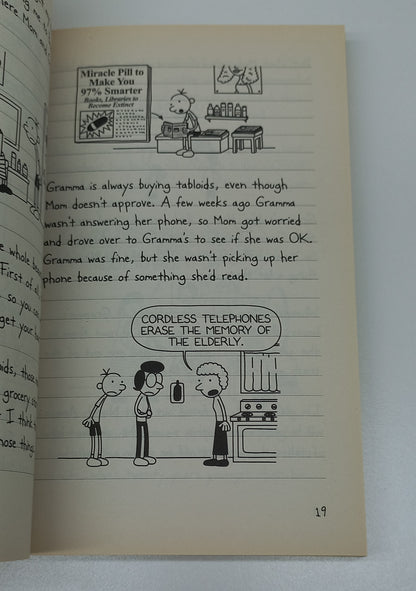 here Mom and
Miracle Pill to
Make You
97% Smarter
Books, Libraries to
Become Extinct
Gramma is always buying tabloids, even though
Mom doesn't approve. A few weeks ago Gramma
wasn't answering her phone, so Mom got worried
and drove over to Gramma's to see if she was OK.
Gramma was fine, but she wasn't picking up her
phone because of something she'd read.
e whole
First of al
so you ca
get your
CORDLESS TELEPHONES
ERASE THE MEMORY OF
THE ELDERLY.
ids, those
grocery st
I think
hose thing
19